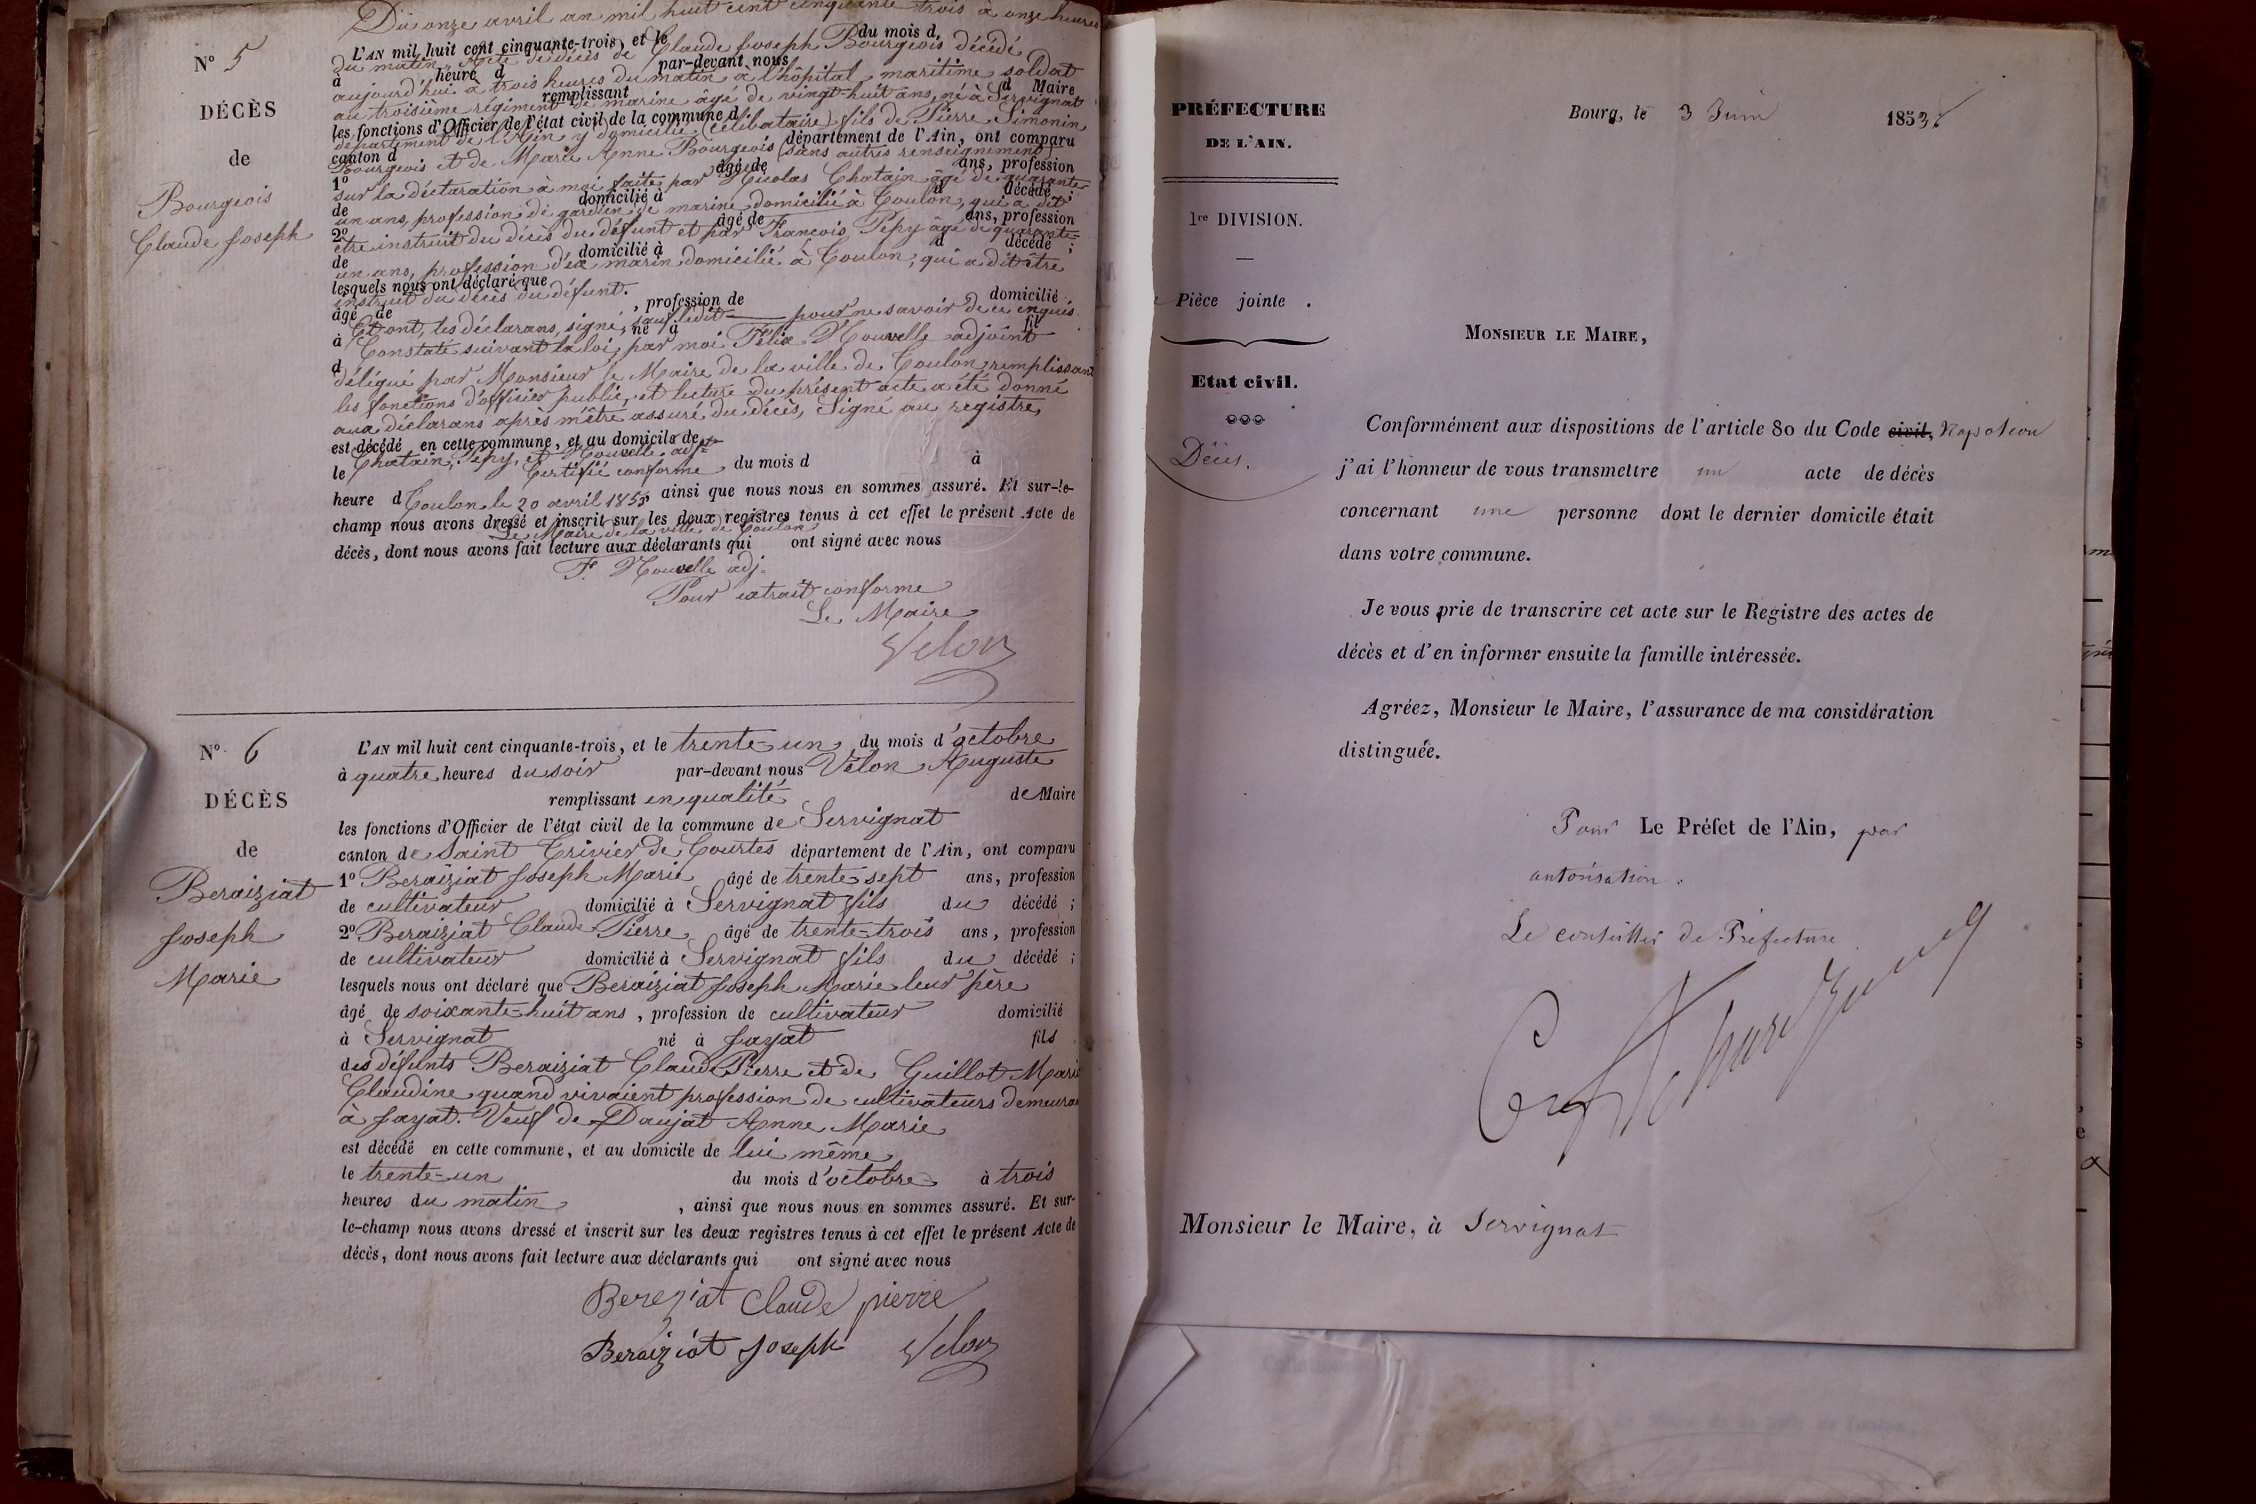 Du onze avril an mil huit cent cinquante trois à onze heures
N° 5
L'AN mil huit cent cinquante-trois, et le du mois d
du matin. Acte de décès de Claude Joseph Bourgeois décédé
à heure d par-devant nous
aujourd'hui à trois heures du matin à l'hôpital maritime soldat
remplissant d Maire
au troisième régiment de marine âgé de vingt-huit ans, né à Servignat
DÉCÈS
les fonctions d'Officier de l'état civil de la commune d
département de l'Ain y domicilié (célibataire) fils de Pierre Simonin
canton d département de l'Ain, ont comparu
de
Bourgeois et de Marie Anne Bourgeois (sans autres renseignements)
1° âgé de ans, profession
sur la déclaration à moi faite par Nicolas Chatain âgé de quarante
de domicilié à d décédé ;
Bourgeois
un ans, profession de gardien de marine domicilié à Toulon, qui a dit
2° âgé de ans, profession
Claude Joseph
être instruit du décès du défunt et par François Pépy âgé de quarante-
de domicilié à d décédé ;
un ans, profession d'ex marin domicilié à Toulon, qui a dit être
lesquels nous ont déclaré que
instruit du décès du défunt.
âgé de , profession de domicilié
Et ont, les déclarans, signé, sauf ledit pour ne savoir de ce enquis.
à né à fil
Constaté suivant la loi, par moi Félix Nouvelle adjoint
d
délégué par Monsieur le Maire de la ville de Toulon remplissant
les fonctions d'officier public, et lecture du présent acte a été donné
aux déclarans après m'être assuré du décès, Signé au registre,
est décédé en cette commune, et au domicile de
Chatain, Pépy, et Nouvelle adjt
le du mois d à
Certifié conforme
heure d ainsi que nous nous en sommes assuré. Et sur-le-
Toulon le 20 avril 1853
champ nous avons dressé et inscrit sur les deux registres tenus à cet effet le présent Acte de
Le Maire de la ville de Toulon
décès, dont nous avons fait lecture aux déclarants qui ont signé avec nous
F. Nouvelle adj.
Pour extrait conforme
Le Maire
Velon
N° 6
DÉCÈS
de
Beraiziat
Joseph
Marie
L'AN mil huit cent cinquante-trois, et le trente-un du mois d'octobre
à quatre heures du soir par-devant nous Velon Auguste
remplissant en qualité de Maire
les fonctions d'Officier de l'état civil de la commune de Servignat
canton de Saint Trivier de Courtes département de l'Ain, ont comparu
1° Beraiziat Joseph Marie âgé de trente sept ans, profession
de cultivateur domicilié à Servignat fils du décédé ;
2° Beraiziat Claude Pierre âgé de trente-trois ans, profession
de cultivateur domicilié à Servignat fils du décédé ;
lesquels nous ont déclaré que Beraiziat Joseph Marie leur père
âgé de soixante-huit ans, profession de cultivateur domicilié
à Servignat né à Jayat fils
des défunts Beraiziat Claude Pierre et de Guillot Marie
Claudine quand vivaient profession de cultivateurs demeurant
à Jayat. Veuf de Daujat Anne Marie
est décédé en cette commune, et au domicile de lui même
le trente-un du mois d'octobre à trois
heures du matin , ainsi que nous nous en sommes assuré. Et sur-
le-champ nous avons dressé et inscrit sur les deux registres tenus à cet effet le présent Acte de
décès, dont nous avons fait lecture aux déclarants qui ont signé avec nous
Bereziat Claude pierre
Beraiziat Joseph Velon
PRÉFECTURE
DE L'AIN.
1re DIVISION.
Pièce jointe .
Etat civil.
Décès.
Bourg, le 3 Juin 1853
MONSIEUR LE MAIRE,
Conformément aux dispositions de l'article 80 du Code civil, Napoléon
j'ai l'honneur de vous transmettre un acte de décès
concernant une personne dont le dernier domicile était
dans votre commune.
Je vous prie de transcrire cet acte sur le Registre des actes de
décès et d'en informer ensuite la famille intéressée.
Agréez, Monsieur le Maire, l'assurance de ma considération
distinguée.
Pour Le Préfet de l'Ain, par
autorisation :
Le conseiller de Préfecture
Monsieur le Maire, à Servignat